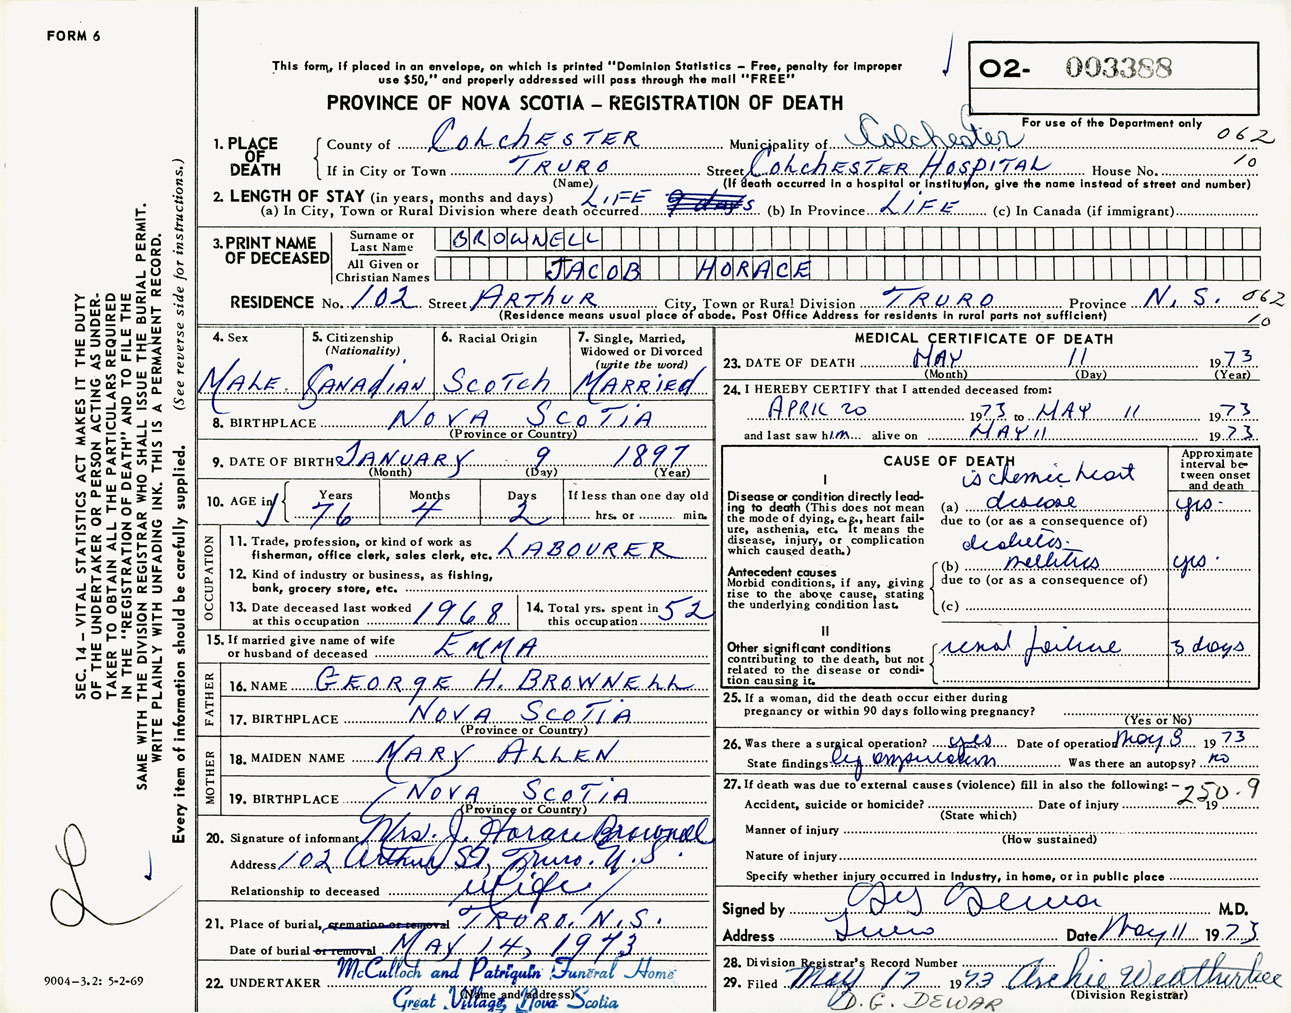 FORM 6
This form, if placed in an envelope, on which is printed "Dominion Statistics – Free, penalty for improper
use $50," and properly addressed will pass through the mail "FREE"
O2- 003388
PROVINCE OF NOVA SCOTIA – REGISTRATION OF DEATH
For use of the Department only
062
10
1. PLACE OF DEATH
County of COLCHESTER Municipality of Colchester
If in City or Town TRURO Street COLCHESTER HOSPITAL House No.
(Name) (If death occurred in a hospital or institution, give the name instead of street and number)
2. LENGTH OF STAY (in years, months and days)
(a) In City, Town or Rural Division where death occurred LIFE 9 days (b) In Province LIFE (c) In Canada (if immigrant)
3. PRINT NAME OF DECEASED
Surname or Last Name BROWNELL
All Given or Christian Names JACOB HORACE
RESIDENCE No. 102 Street ARTHUR City, Town or Rural Division TRURO Province N.S. 062
10
(Residence means usual place of abode. Post Office Address for residents in rural parts not sufficient)
4. Sex
MALE
5. Citizenship
(Nationality)
CANADIAN
6. Racial Origin
SCOTCH
7. Single, Married,
Widowed or Divorced
(write the word)
MARRIED
8. BIRTHPLACE NOVA SCOTIA
(Province or Country)
9. DATE OF BIRTH JANUARY 9 1897
(Month) (Day) (Year)
10. AGE in
Years Months Days If less than one day old
76 4 2 hrs. or min.
OCCUPATION
11. Trade, profession, or kind of work as
fisherman, office clerk, sales clerk, etc. LABOURER
12. Kind of industry or business, as fishing,
bank, grocery store, etc.
13. Date deceased last worked
at this occupation 1968
14. Total yrs. spent in
this occupation 52
15. If married give name of wife
or husband of deceased EMMA
FATHER
16. NAME GEORGE H. BROWNELL
17. BIRTHPLACE NOVA SCOTIA
(Province or Country)
MOTHER
18. MAIDEN NAME MARY ALLEN
19. BIRTHPLACE NOVA SCOTIA
(Province or Country)
20. Signature of informant Mrs. J. Horace Brownell
Address 102 Arthur St, Truro. N.S.
Relationship to deceased Wife
21. Place of burial, cremation or removal TRURO, N.S.
Date of burial or removal MAY 14, 1973
22. UNDERTAKER McCulloch and Patriquin Funeral Home
(Name and address)
Great Village, Nova Scotia
MEDICAL CERTIFICATE OF DEATH
23. DATE OF DEATH MAY 11 1973
(Month) (Day) (Year)
24. I HEREBY CERTIFY that I attended deceased from:
APRIL 20 1973 to MAY 11 1973
and last saw him alive on MAY 11 1973
CAUSE OF DEATH
Approximate
interval be-
tween onset
and death
I
Disease or condition directly lead-
ing to death (This does not mean
the mode of dying, e.g., heart fail-
ure, asthenia, etc. It means the
disease, injury, or complication
which caused death.)
ischemic heart
(a) disease yrs.
due to (or as a consequence of)
Antecedent causes
Morbid conditions, if any, giving
rise to the above cause, stating
the underlying condition last.
diabetis
(b) mellitus yrs.
due to (or as a consequence of)
(c)
II
Other significant conditions
contributing to the death, but not
related to the disease or condi-
tion causing it.
renal failure 3 days
25. If a woman, did the death occur either during
pregnancy or within 90 days following pregnancy?
(Yes or No)
26. Was there a surgical operation? yes Date of operation May 3 1973
State findings leg amputation Was there an autopsy? no
27. If death was due to external causes (violence) fill in also the following: 250.9
Accident, suicide or homicide? Date of injury 19
(State which)
Manner of injury
(How sustained)
Nature of injury
Specify whether injury occurred in industry, in home, or in public place
Signed by DG Dewar M.D.
Address Truro Date May 11 1973
28. Division Registrar's Record Number
29. Filed May 17 1973 Archie Weatherbee
(Division Registrar)
D.G. DEWAR
SEC. 14 – VITAL STATISTICS ACT MAKES IT THE DUTY
OF THE UNDERTAKER OR PERSON ACTING AS UNDER-
TAKER TO OBTAIN ALL THE PARTICULARS REQUIRED
IN THE "REGISTRATION OF DEATH" AND TO FILE THE
SAME WITH THE DIVISION REGISTRAR WHO SHALL ISSUE THE BURIAL PERMIT.
WRITE PLAINLY WITH UNFADING INK. THIS IS A PERMANENT RECORD.
Every item of information should be carefully supplied. (See reverse side for instructions.)
9004-3.2: 5-2-69